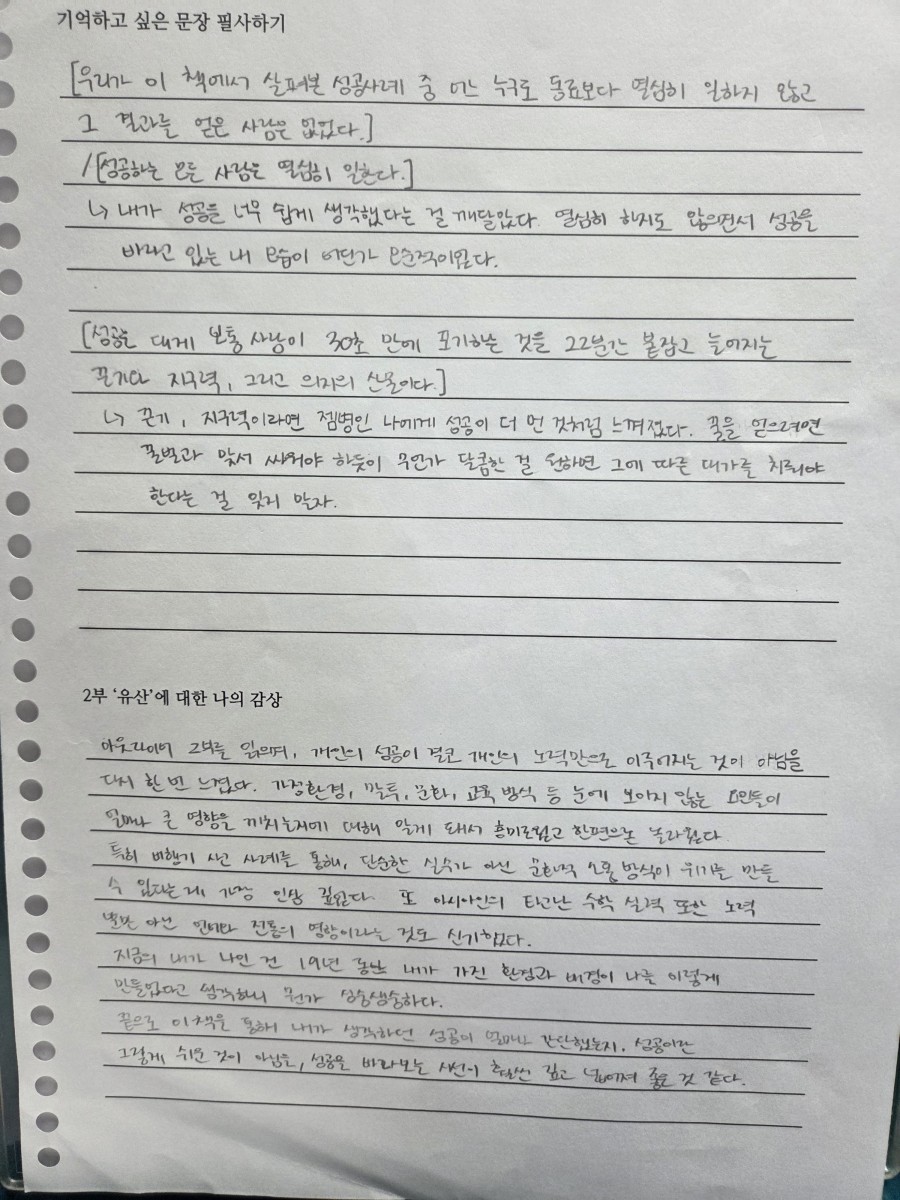 기억하고 싶은 문장 필사하기
[우리가 이 책에서 살펴본 성공사례 중 어느 누구도 동료보다 열심히 일하지 않고
그 결과를 얻은 사람은 없었다.]
/[성공하는 모든 사람은 열심히 일한다.]
↳ 내가 성공을 너무 쉽게 생각했다는 걸 깨달았다. 열심히 하지도 않으면서 성공을
바라고 있는 내 모습이 어딘가 모순적이었다.
[성공은 대게 보통 사람이 30초 만에 포기하는 것을 22분간 붙잡고 늘어지는
끈기와 지구력, 그리고 의지의 산물이다.]
↳ 끈기, 지구력이라면 젬병인 나에게 성공이 더 먼 것처럼 느껴졌다. 꿀을 얻으려면
꿀벌과 맞서 싸워야 하듯이 무언가 달콤한 걸 원하면 그에 따른 대가를 치뤄야
한다는 걸 잊지 말자.
2부 '유산'에 대한 나의 감상
아웃라이어 2부를 읽으며, 개인의 성공이 결코 개인의 노력만으로 이루어지는 것이 아님을
다시 한 번 느꼈다. 가정환경, 말투, 문화, 교육 방식 등 눈에 보이지 않는 요인들이
얼마나 큰 영향을 끼치는지에 대해 알게 돼서 흥미로웠고 한편으론 놀라웠다.
특히 비행기 사고 사례를 통해, 단순한 실수가 아닌 문화적 소통 방식이 위기를 만들
수 있다는 게 가장 인상 깊었다. 또 아시아인의 타고난 수학 실력 또한 노력
뿐만 아닌 언어와 전통의 영향이라는 것도 신기했다.
지금의 내가 나인 건 19년 동안 내가 가진 환경과 배경이 나를 이렇게
만들었다고 생각하니 뭔가 싱숭생숭하다.
끝으로 이 책을 통해 내가 생각하던 성공이 얼마나 간단했는지, 성공이란
그렇게 쉬운 것이 아님을, 성공을 바라보는 시선이 훨씬 깊고 넓어져 좋은 것 같다.